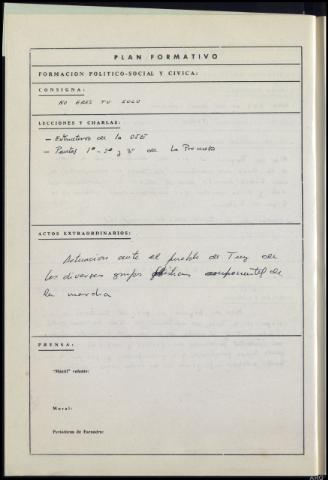 PLAN FORMATIVO
FORMACION POLITICO-SOCIAL Y CIVICA:
CONSIGNA:
NO ERES TU SOLO
LECCIONES Y CHARLAS:
- Estructura de la OJE
- Puntos 1º - 2º y 3º de La Promesa
ACTOS EXTRAORDINARIOS:
Actuacion ante el pueblo de Tuy de
los diversos grupos componentes de
la marcha
PRENSA:
"Mástil" volante:
Mural:
Periódicos de Escuadra: